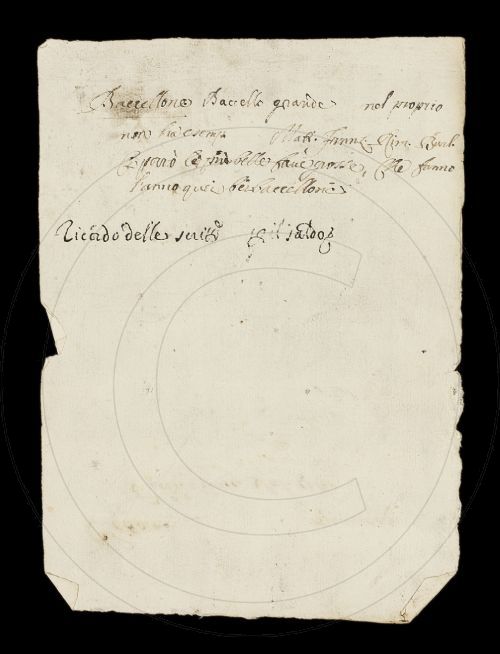 Baccellone Baccello grande nel proprio
non ha esem. Matt. Franz. Rim. Burl.
E però le più belle fave grosse, che fanno
hanno quei be' baccelloni
Ricordo delle scritt.e